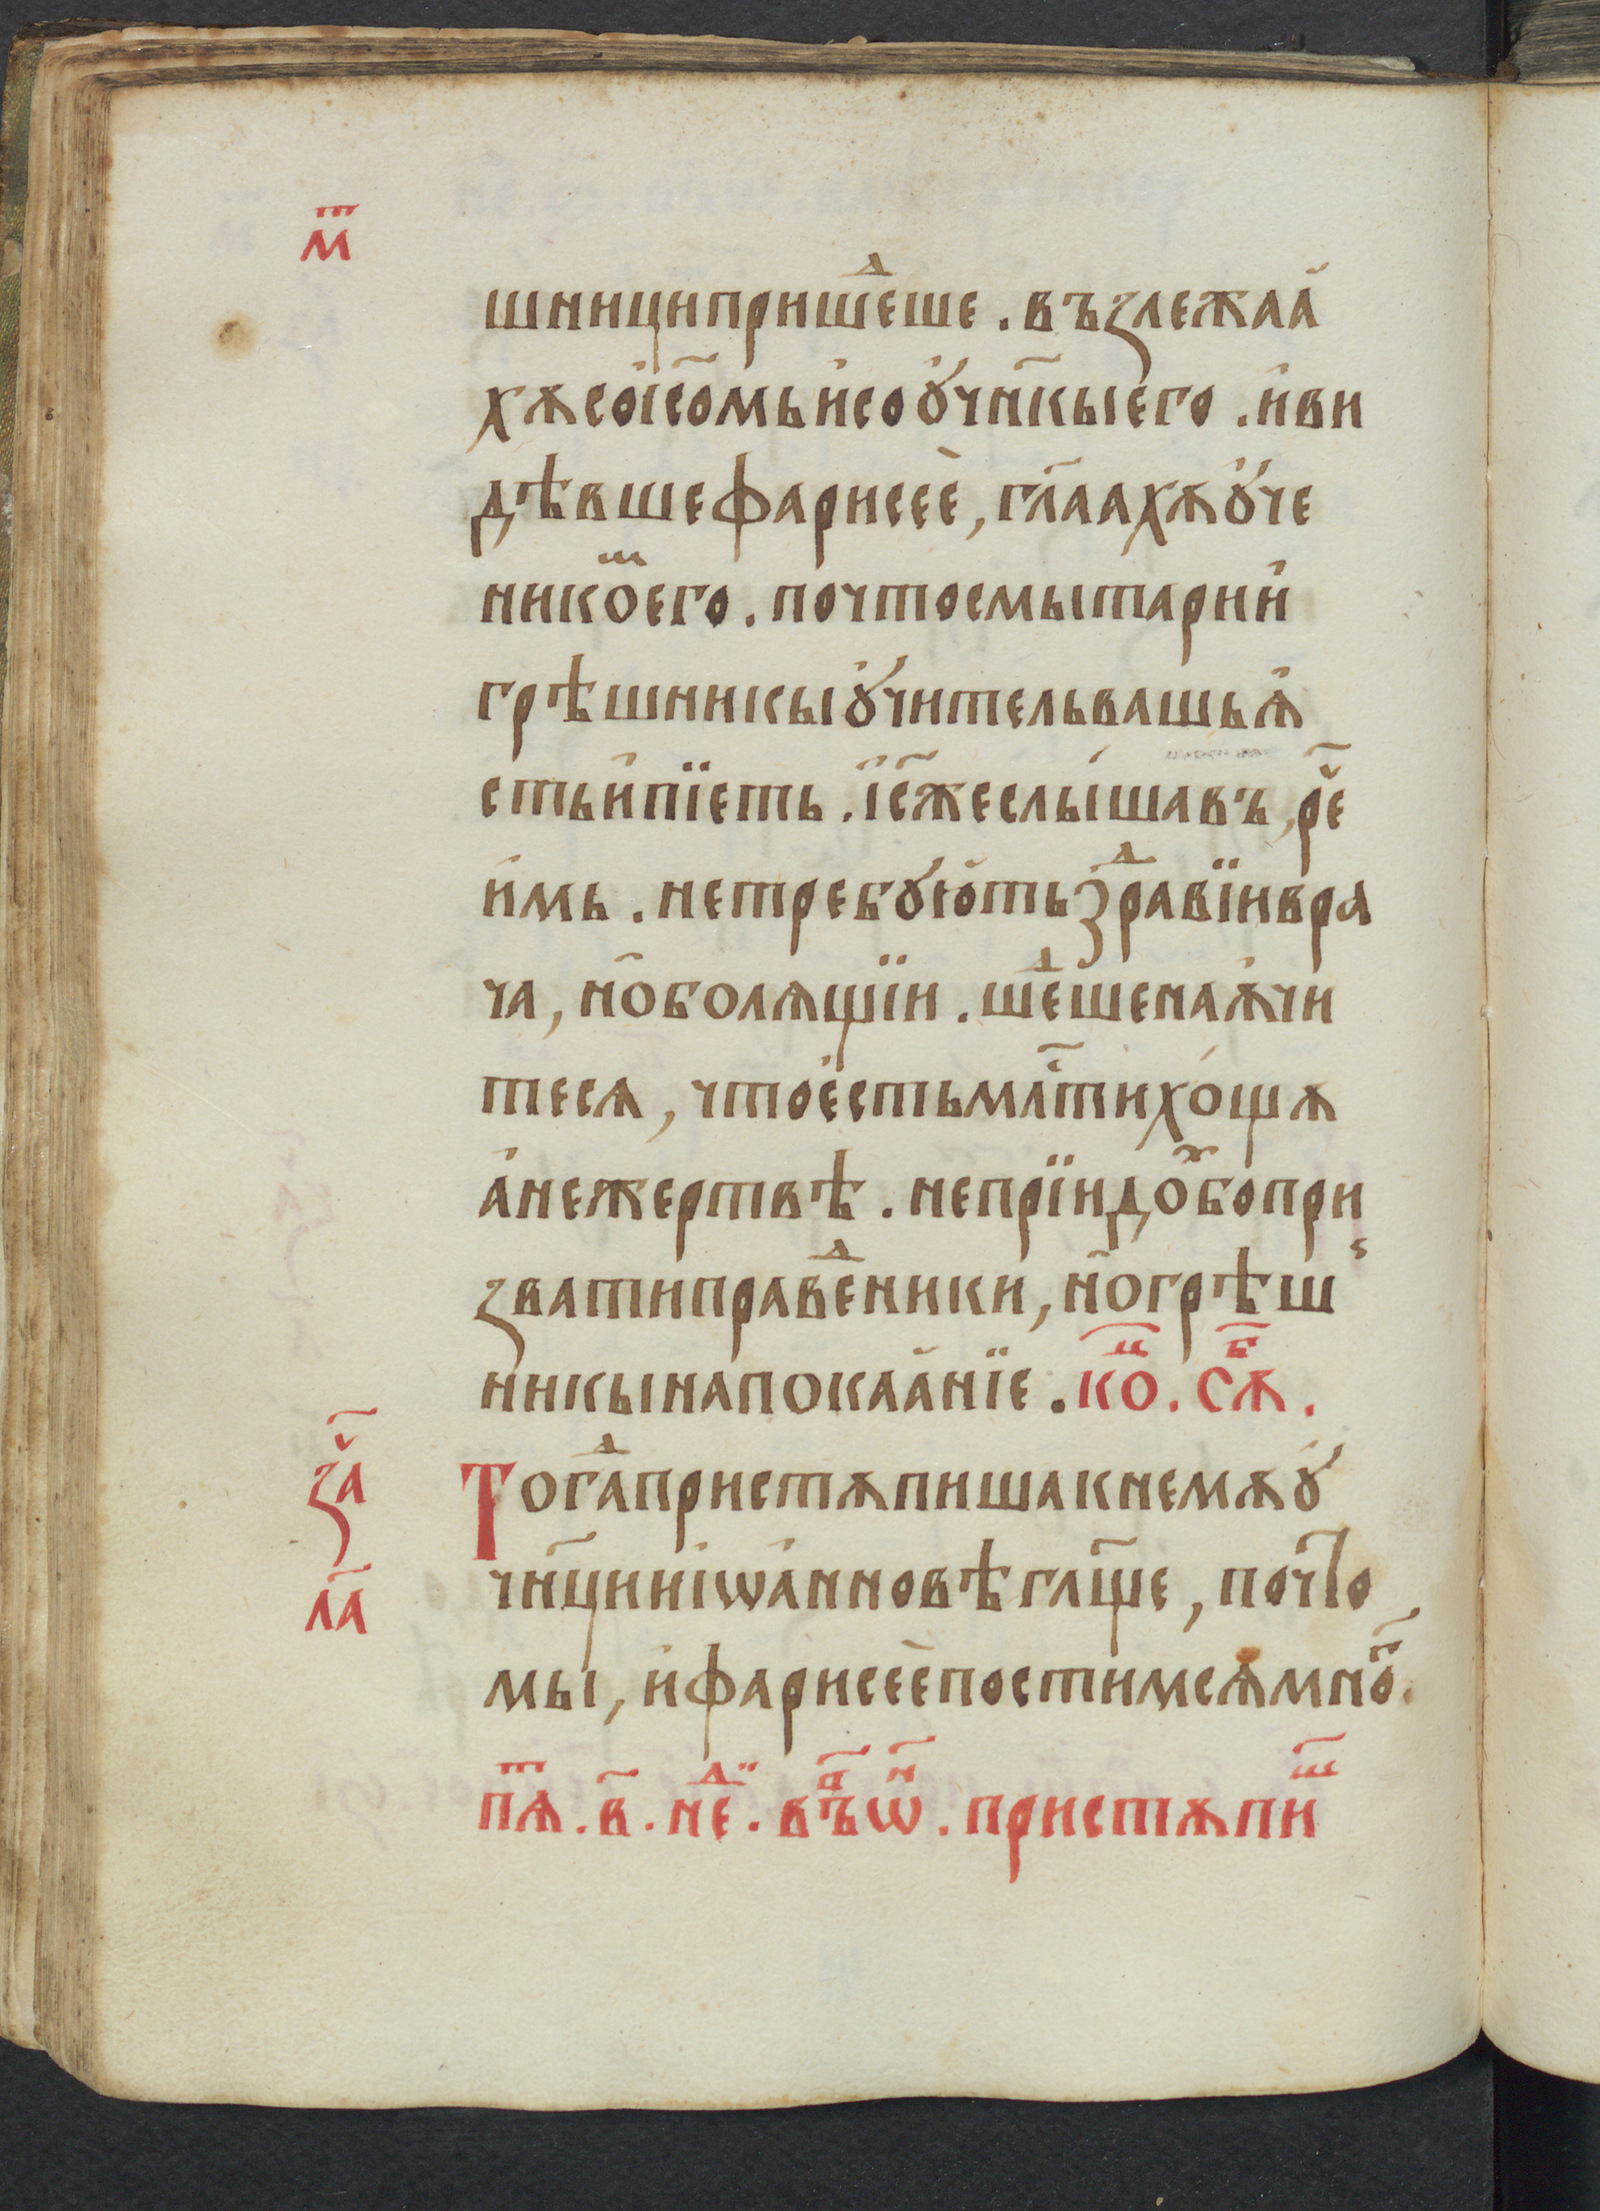 м҃т
шници пришеⷣше . възлежаа
хѫ со і҆с҃омь и҆ со ᲂу҆чн҃кы е҆го . и҆ ви
дѣвше фарисеѐ , гл҃аахѫ ꙋ҆че
никоⷨ е҆го . почто с мытари и҆
грѣшникы ꙋ҆читель вашь ꙗ҆
сть и҆ пїеть . і҆с҃ же слы́шавъ , рече҃
и҆мь . не требꙋ́ють зⷣравїи вра
ча , но҃ болѧщїи . шеⷣше наѫ҆чи
тесѧ , что є҆сть млⷭ҇ти хо́щѫ
а҆ не жертвѣ . не прїидоⷯ бо при
звати праведⷣники , но҃ грѣш
никы на покаа҆нїе . коⷰ҇ . сѫⷠ҇ .
за҃ч
л҃а
Тогⷣа пристѫпиша к немѫ ꙋ҆
чн҃ци и҆ і҆ѡа҆нновѣ гл҃ще , почто
мы , и҆ фарисеѐ постимсѧ мноⷢ҇ .
пѧⷮ . в҃ . неⷣ . въ ѿⷩ҇ . пристѫпиⷲ